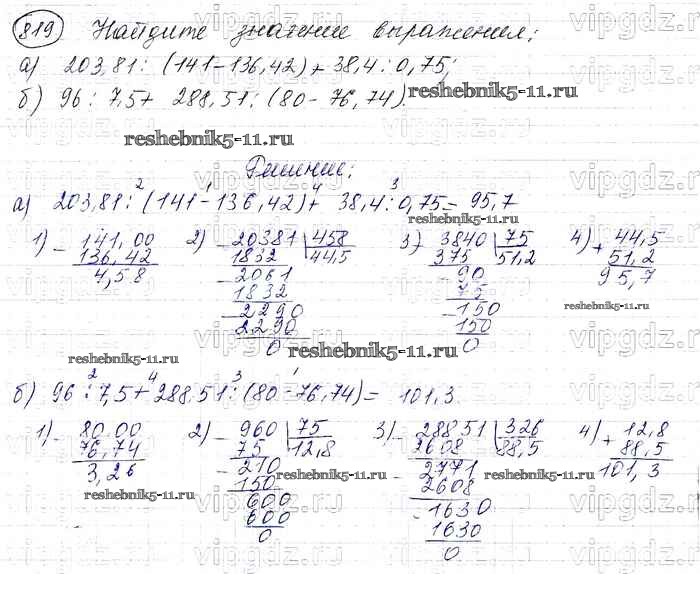 819 Найдите значение выражения:
а) 203,81 : (141 – 136,42) + 38,4 : 0,75;
б) 96 : 7,5 + 288,51 : (80 – 76,74).
reshebnik5-11.ru
Решение:
а) 203,81 : (141 – 136,42) + 38,4 : 0,75 = 95,7
2 1 4 3
reshebnik5-11.ru
1) – 141,00 2) – 20381 | 458 3) – 3840 | 75 4) + 44,5
136,42 1832 44,5 375 51,2 51,2
4,58 – 2061 90 95,7
1832 75
– 2290 – 150
2290 150
0 0
reshebnik5-11.ru
reshebnik5-11.ru
reshebnik5-11.ru
2 4 3 1
б) 96 : 7,5 + 288,51 : (80 – 76,74) = 101,3
1) – 80,00 2) – 960 | 75 3) – 288,51 | 326 4) + 12,8
76,74 75 12,8 2608 88,5 88,5
3,26 – 210 – 2771 101,3
150 2608
600 – 1630
600 1630
0 0
reshebnik5-11.ru
reshebnik5-11.ru
reshebnik5-11.ru
reshebnik5-11.ru
vipgdz.ru